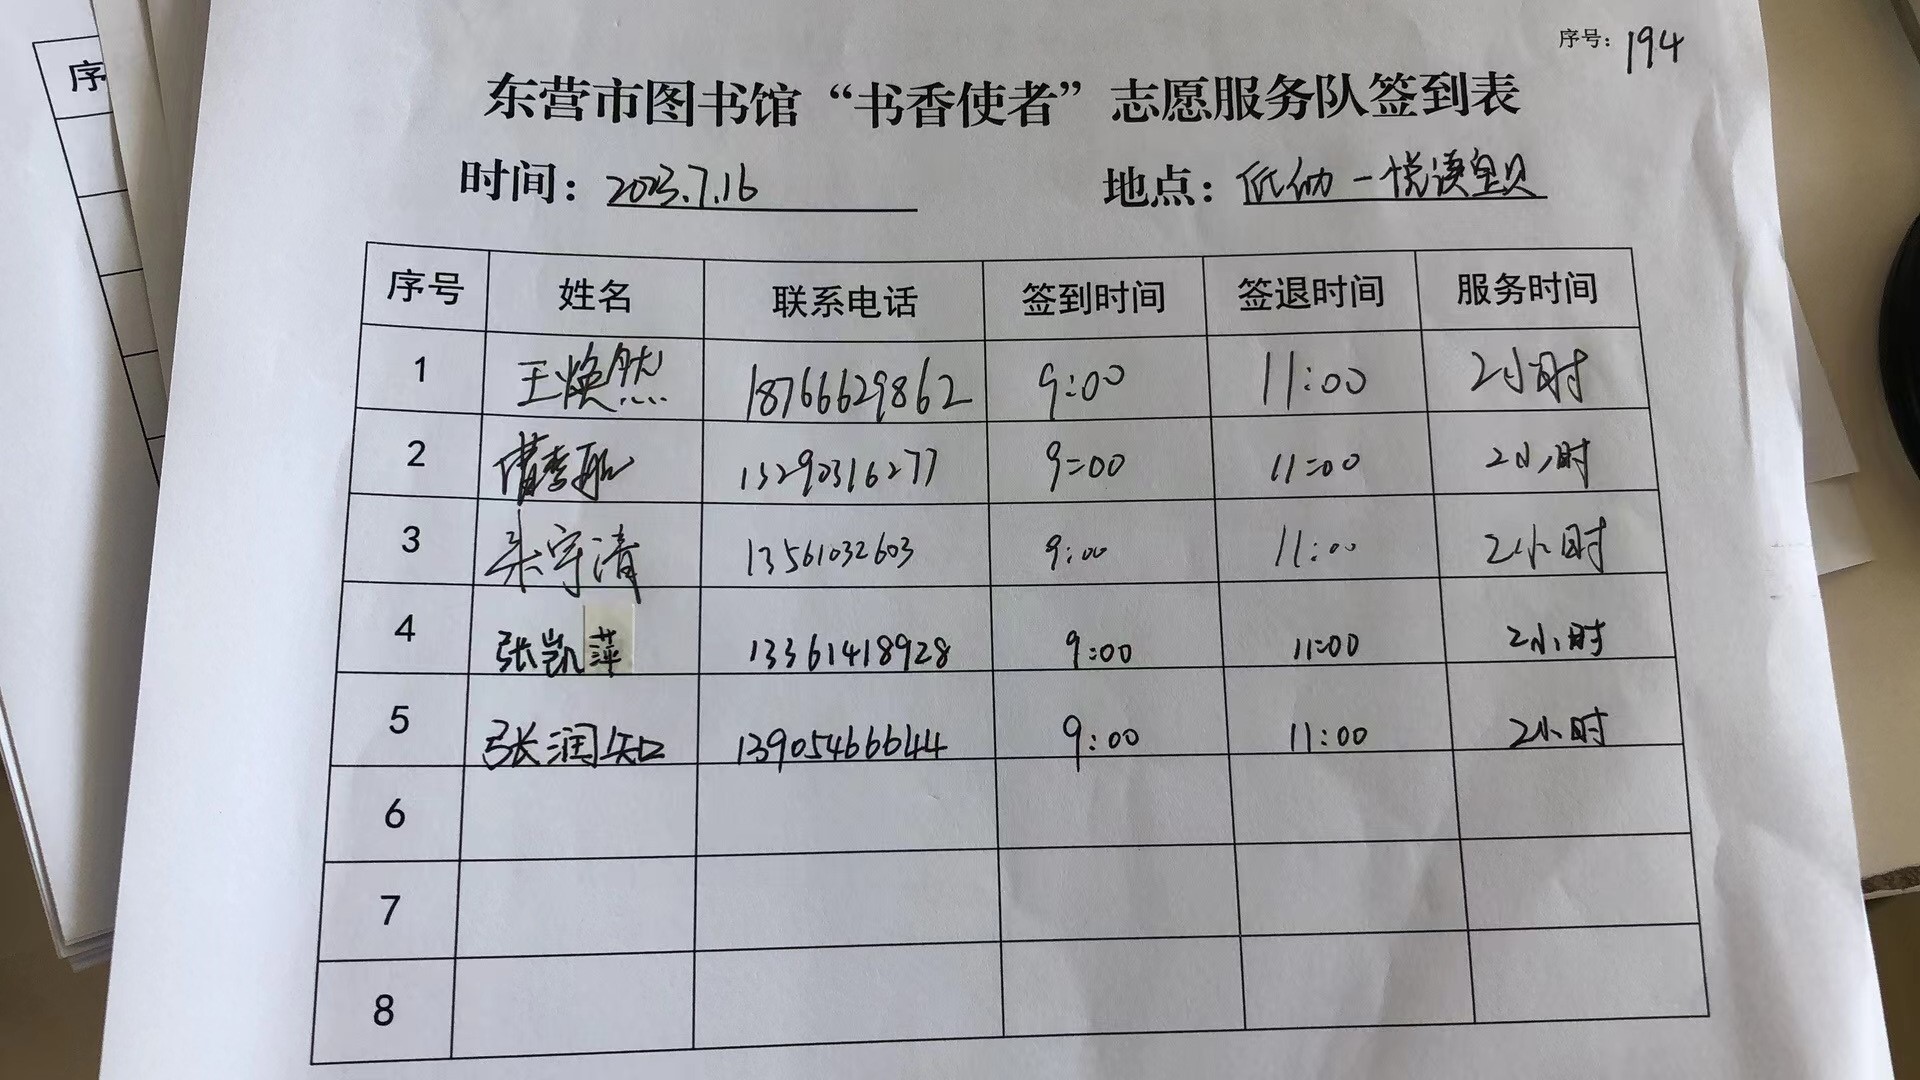 序号：194
东营市图书馆“书香使者”志愿服务队签到表
时间：2023.7.16 地点：低幼一悦读宝贝
序号 姓名 联系电话 签到时间 签退时间 服务时间
1 王焕然 18766629862 9:00 11:00 2小时
2 13290316277 9=00 11=00 2小时
3 宋守清 13561032603 9:00 11:00 2小时
4 张凯萍 13361418928 9:00 11:00 2小时
5 张润知 13905466644 9:00 11:00 2小时
6
7
8
序